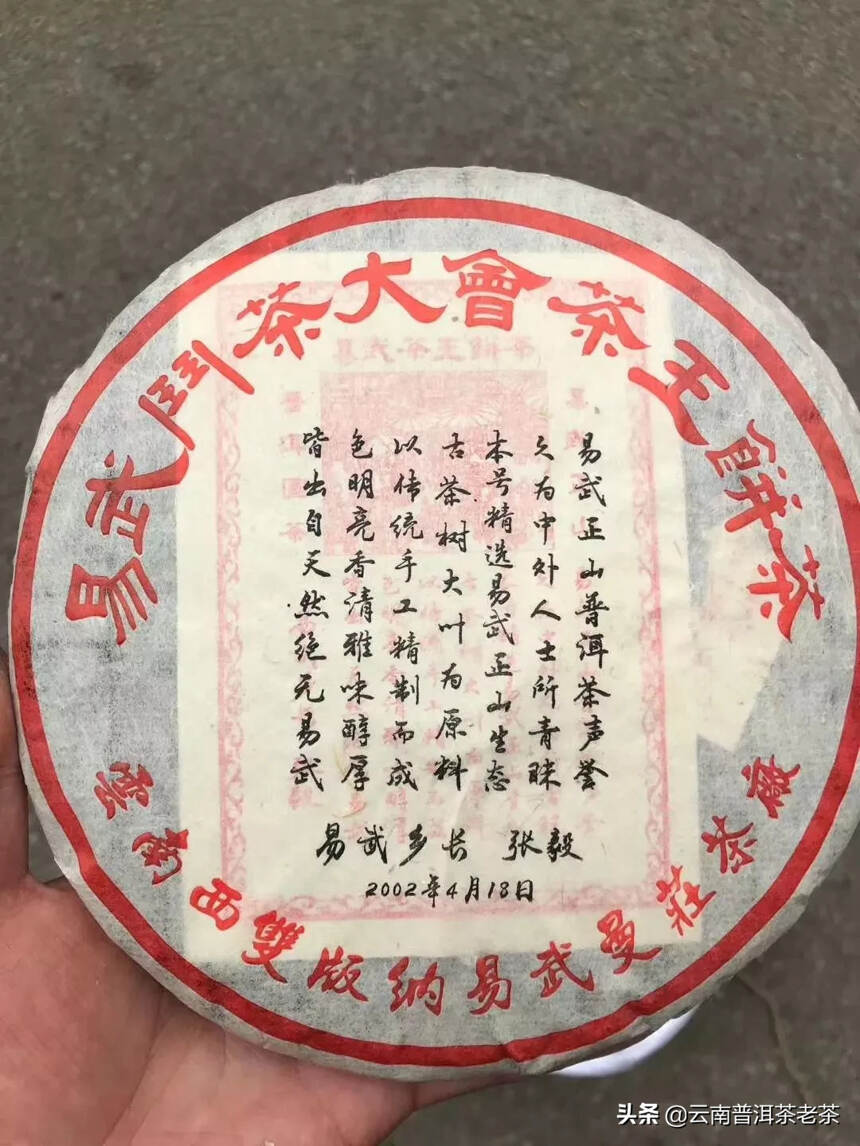 易武鬥茶大會茶王餅茶
易武茶王餅茶
易武正山普洱茶声誉
久为中外人士所青睐
本号精选易武正山生态
古茶树大叶为原料
以传统手工精制而成
色明亮香清雅味醇厚
皆出自天然绝无易武
易武乡长 张毅
2002年4月18日
雲南西雙版納易武曼莊
头条 @云南普洱茶老茶